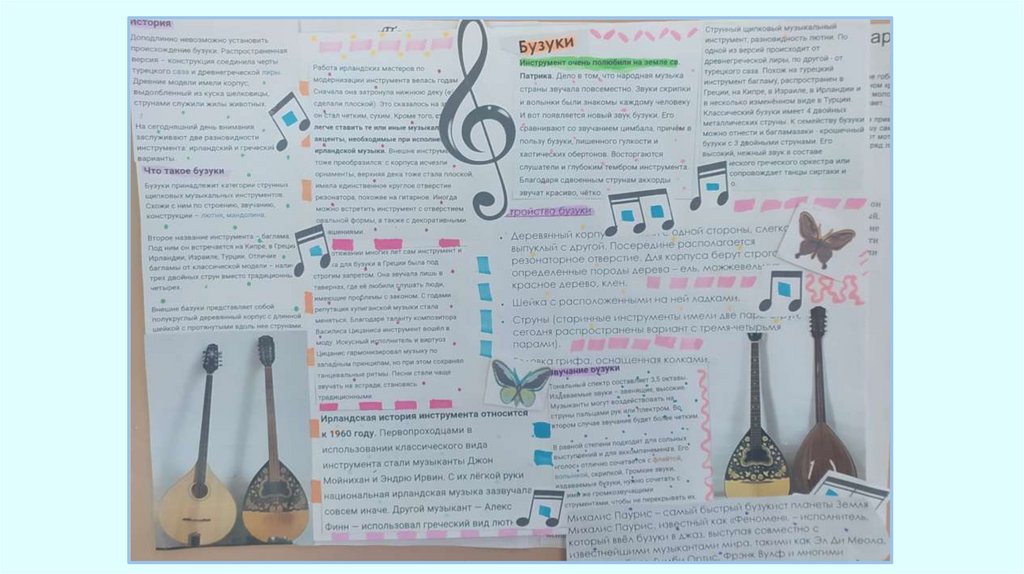 История
Доподлинно невозможно установить
происхождение бузуки. Распространенная
версия – конструкция соединила черты
турецкого саза и древнегреческой лиры.
Древние модели имели корпус,
выдолбленный из куска шелковицы,
струнами служили жилы животных.
На сегодняшний день внимания
заслуживают две разновидности
инструмента: ирландский и греческий
варианты.
Что такое бузуки
Бузуки принадлежит категории струнных
щипковых музыкальных инструментов.
Схожи с ним по строению, звучанию,
конструкции – лютня, мандолина.
Второе название инструмента – баглама.
Под ним он встречается на Кипре, в Греции
Ирландии, Израиле, Турции. Отличие
багламы от классической модели – налич
трех двойных струн вместо традиционных
четырех.
Внешне базуки представляет собой
полукруглый деревянный корпус с длинной
шейкой с протянутыми вдоль нее струнами.
Работа ирландских мастеров по
модернизации инструмента велась годам
Сначала она затронула нижнюю деку (её
сделали плоской). Это сказалось на з
он стал четким, сухим. Кроме того, с
легче ставить те или иные музыкал
акценты, необходимые при исполне
ирландской музыки. Внешне инструм
тоже преобразился: с корпуса исчезли
орнаменты, верхняя дека тоже стала плоской,
имела единственное круглое отверстие
резонатора, похожее на гитарное. Иногда
можно встретить инструмент с отверстием
овальной формы, а также с декоративными
ашениями.
тяжении многих лет сам инструмент и
на для бузуки в Греции была под
строгим запретом. Она звучала лишь в
тавернах, где её любили слушать люди,
имеющие проблемы с законом. С годами
репутация хулиганской музыки стала
меняться. Благодаря таланту композитора
Василиса Цицаниса инструмент вошёл в
моду. Искусный исполнитель и виртуоз
Цицанис гармонизировал музыку по
западным принципам, но при этом сохранял
танцевальные ритмы. Песни стали чаще
звучать на эстраде, становясь
традиционными.
Ирландская история инструмента относится
к 1960 году. Первопроходцами в
использовании классического вида
инструмента стали музыканты Джон
Мойнихан и Эндрю Ирвин. С их лёгкой руки
национальная ирландская музыка зазвучала
совсем иначе. Другой музыкант — Алекс
Финн — использовал греческий вид лютн
Бузуки
Инструмент очень полюбили на земле св.
Патрика. Дело в том, что народная музыка
страны звучала повсеместно. Звуки скрипки
и волынки были знакомы каждому человеку
И вот появляется новый звук бузуки. Его
сравнивают со звучанием цимбала, причём в
пользу бузуки, лишенного гулкости и
хаотических обертонов. Восторгаются
слушатели и глубоким тембром инструмента.
Благодаря сдвоенным струнам аккорды
звучат красиво, чётко.
Струнный щипковый музыкальный
инструмент, разновидность лютни. По
одной из версий происходит от
древнегреческой лиры, по другой - от
турецкого саза. Похож на турецкий
инструмент багламу, распространен в
Греции, на Кипре, в Израиле, в Ирландии и
в несколько изменённом виде в Турции.
Классический бузуки имеет 4 двойных
металлических струны. К семейству бузуки
можно отнести и багламазаки - крошечный
бузуки с 3 двойными струнами. Его
высокий, нежный звук в составе
ческого греческого оркестра или
сопровождает танцы сиртаки и
о.
ар
тройство бузуки
Деревянный корпу с одной стороны, слегка
выпуклый с другой. Посередине располагается
резонаторное отверстие. Для корпуса берут строго
определенные породы дерева – ель, можжевель
красное дерево, клен.
Шейка с расположенными на ней ладками.
Струны (старинные инструменты имели две пары струн,
сегодня распространены вариант с тремя-четырьмя
парами).
грифа, оснащенная колками,
звучание бузуки
Тональный спектр составляет 3,5 октавы.
Издаваемые звуки – звенящие, высокие.
Музыканты могут воздействовать на
струны пальцами рук или плектром. Во
втором случае звучание будет более четким.
В равной степени подходит для сольных
выступлений и для аккомпанемента. Его
«голос» отлично сочетается с флейтой,
волынкой, скрипкой. Громкие звуки,
издаваемые бузуки, нужно сочетать с
ими же громкозвучащими
струментами, чтобы не перекрывать их.
Михалис Паурис – самый быстрый бузукист планеты Земля
Михалис Паурис, известный как «Феномен», – исполнитель,
который ввёл бузуки в джаз, выступая совместно с
известнейшими музыкантами мира, такими как Эл Ди Меола,
Фрэнк Вулф и многими